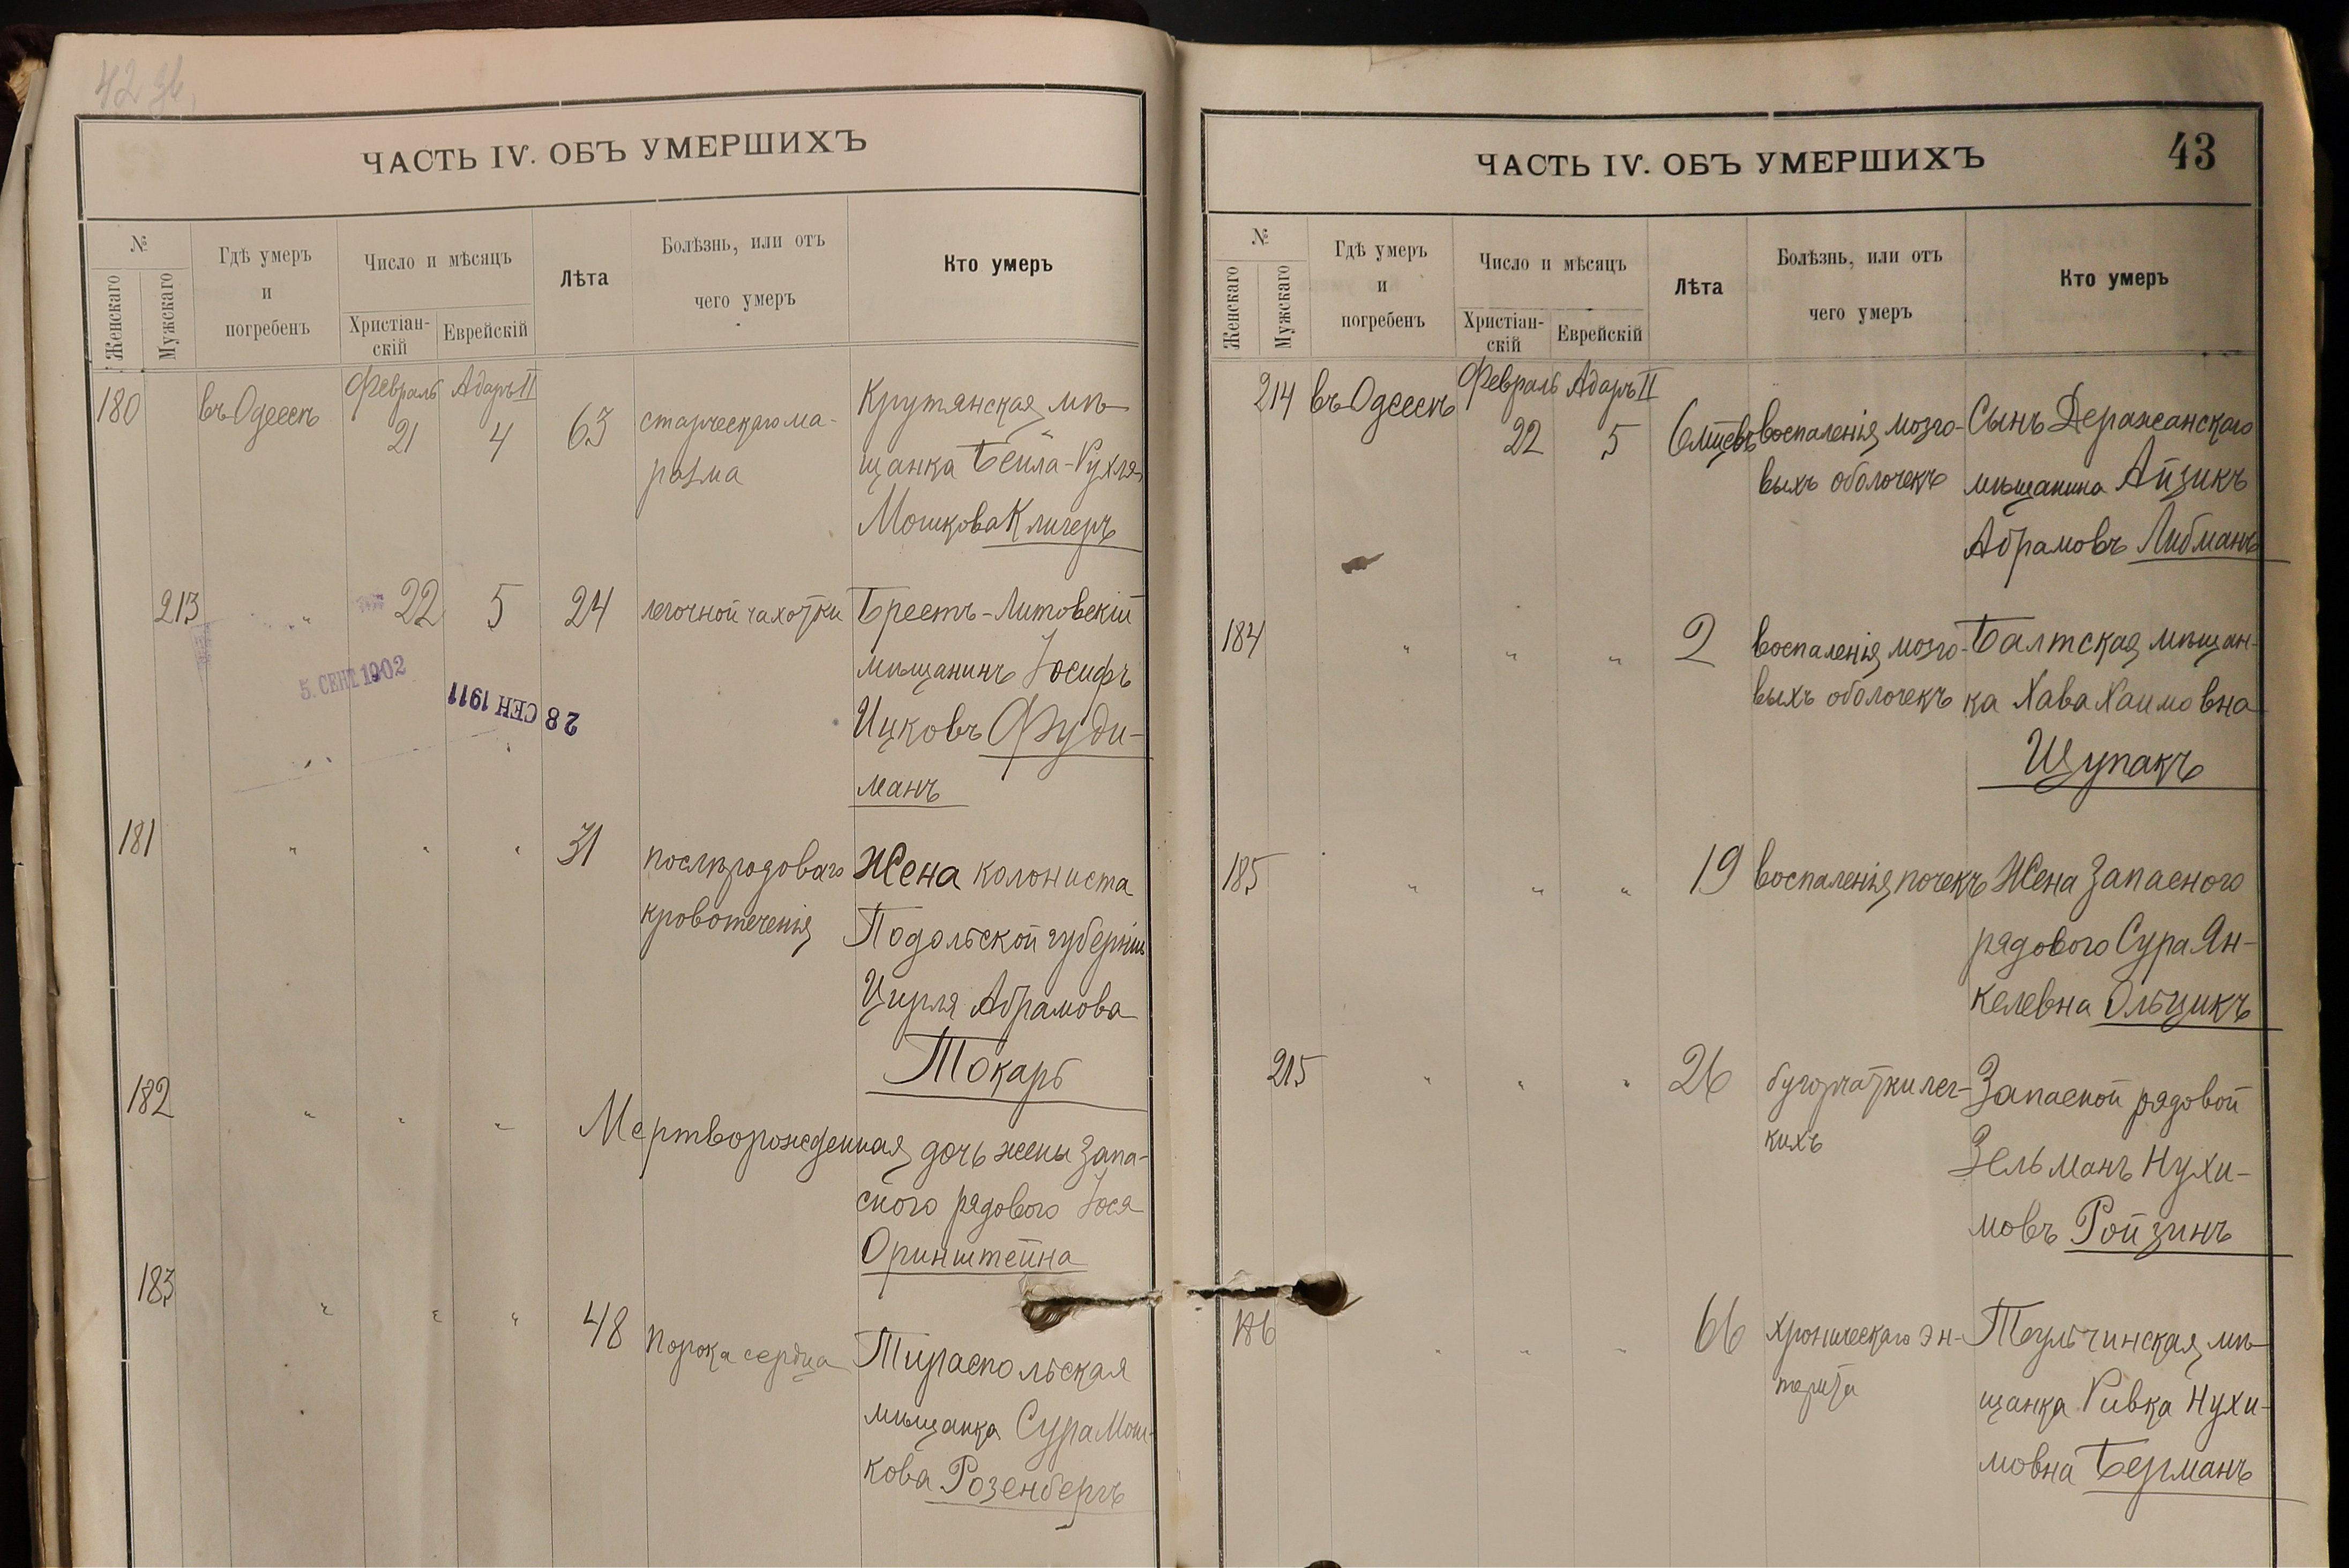 ЧАСТЬ IV. ОБЪ УМЕРШИХЪ
№
Женскаго
Мужскаго
Гдѣ умеръ
и
погребенъ
Число и мѣсяцъ
Христіан-
скій
Еврейскій
Лѣта
Болѣзнь, или отъ
чего умеръ
Кто умеръ
180 въ Одессѣ Февраль Адаръ II 63 старческаго ма- Крутянская мѣ-
21 4 разма щанка Бейла-Рухля
Мошкова Кличеръ
213 " 22 5 24 легочной чахотки Брестъ-Литовскій
мѣщанинъ Іосифъ
5. СЕНТ. 1902
28 СЕН 1911
Ицковъ Фуди-
манъ
181 " " " 31 послѣродоваго Жена колониста
кровотеченія Подольской губерніи
Цирля Абрамова
Токарь
182 " " " Мертворожденная дочь жены запа-
сного рядового Іося
Оринштейна
183 " " " 48 порока сердца Тираспольская
мѣщанка Сура Мош-
кова Розенбергъ
ЧАСТЬ IV. ОБЪ УМЕРШИХЪ 43
№
Женскаго
Мужскаго
Гдѣ умеръ
и
погребенъ
Число и мѣсяцъ
Христіан-
скій
Еврейскій
Лѣта
Болѣзнь, или отъ
чего умеръ
Кто умеръ
214 въ Одессѣ Февраль Адаръ II 6 мѣсяцевъ воспаленія мозго- Сынъ Деражанскаго
22 5 выхъ оболочекъ мѣщанина Айзикъ
Абрамовъ Либманъ
184 " " " 2 воспаленія мозго- Балтская мѣщан-
выхъ оболочекъ ка Хава Хаимовна
Щупакъ
185 " " " 19 воспаленія почекъ Жена запасного
рядового Сура Ян-
келевна Ольцикъ
215 " " " 26 бугорчатки лег- Запасной рядовой
кихъ Зельманъ Нухи-
мовъ Ройзинъ
186 " " " 66 хроническаго эн- Тульчинская мѣ-
терита щанка Ривка Нухи-
мовна Берманъ